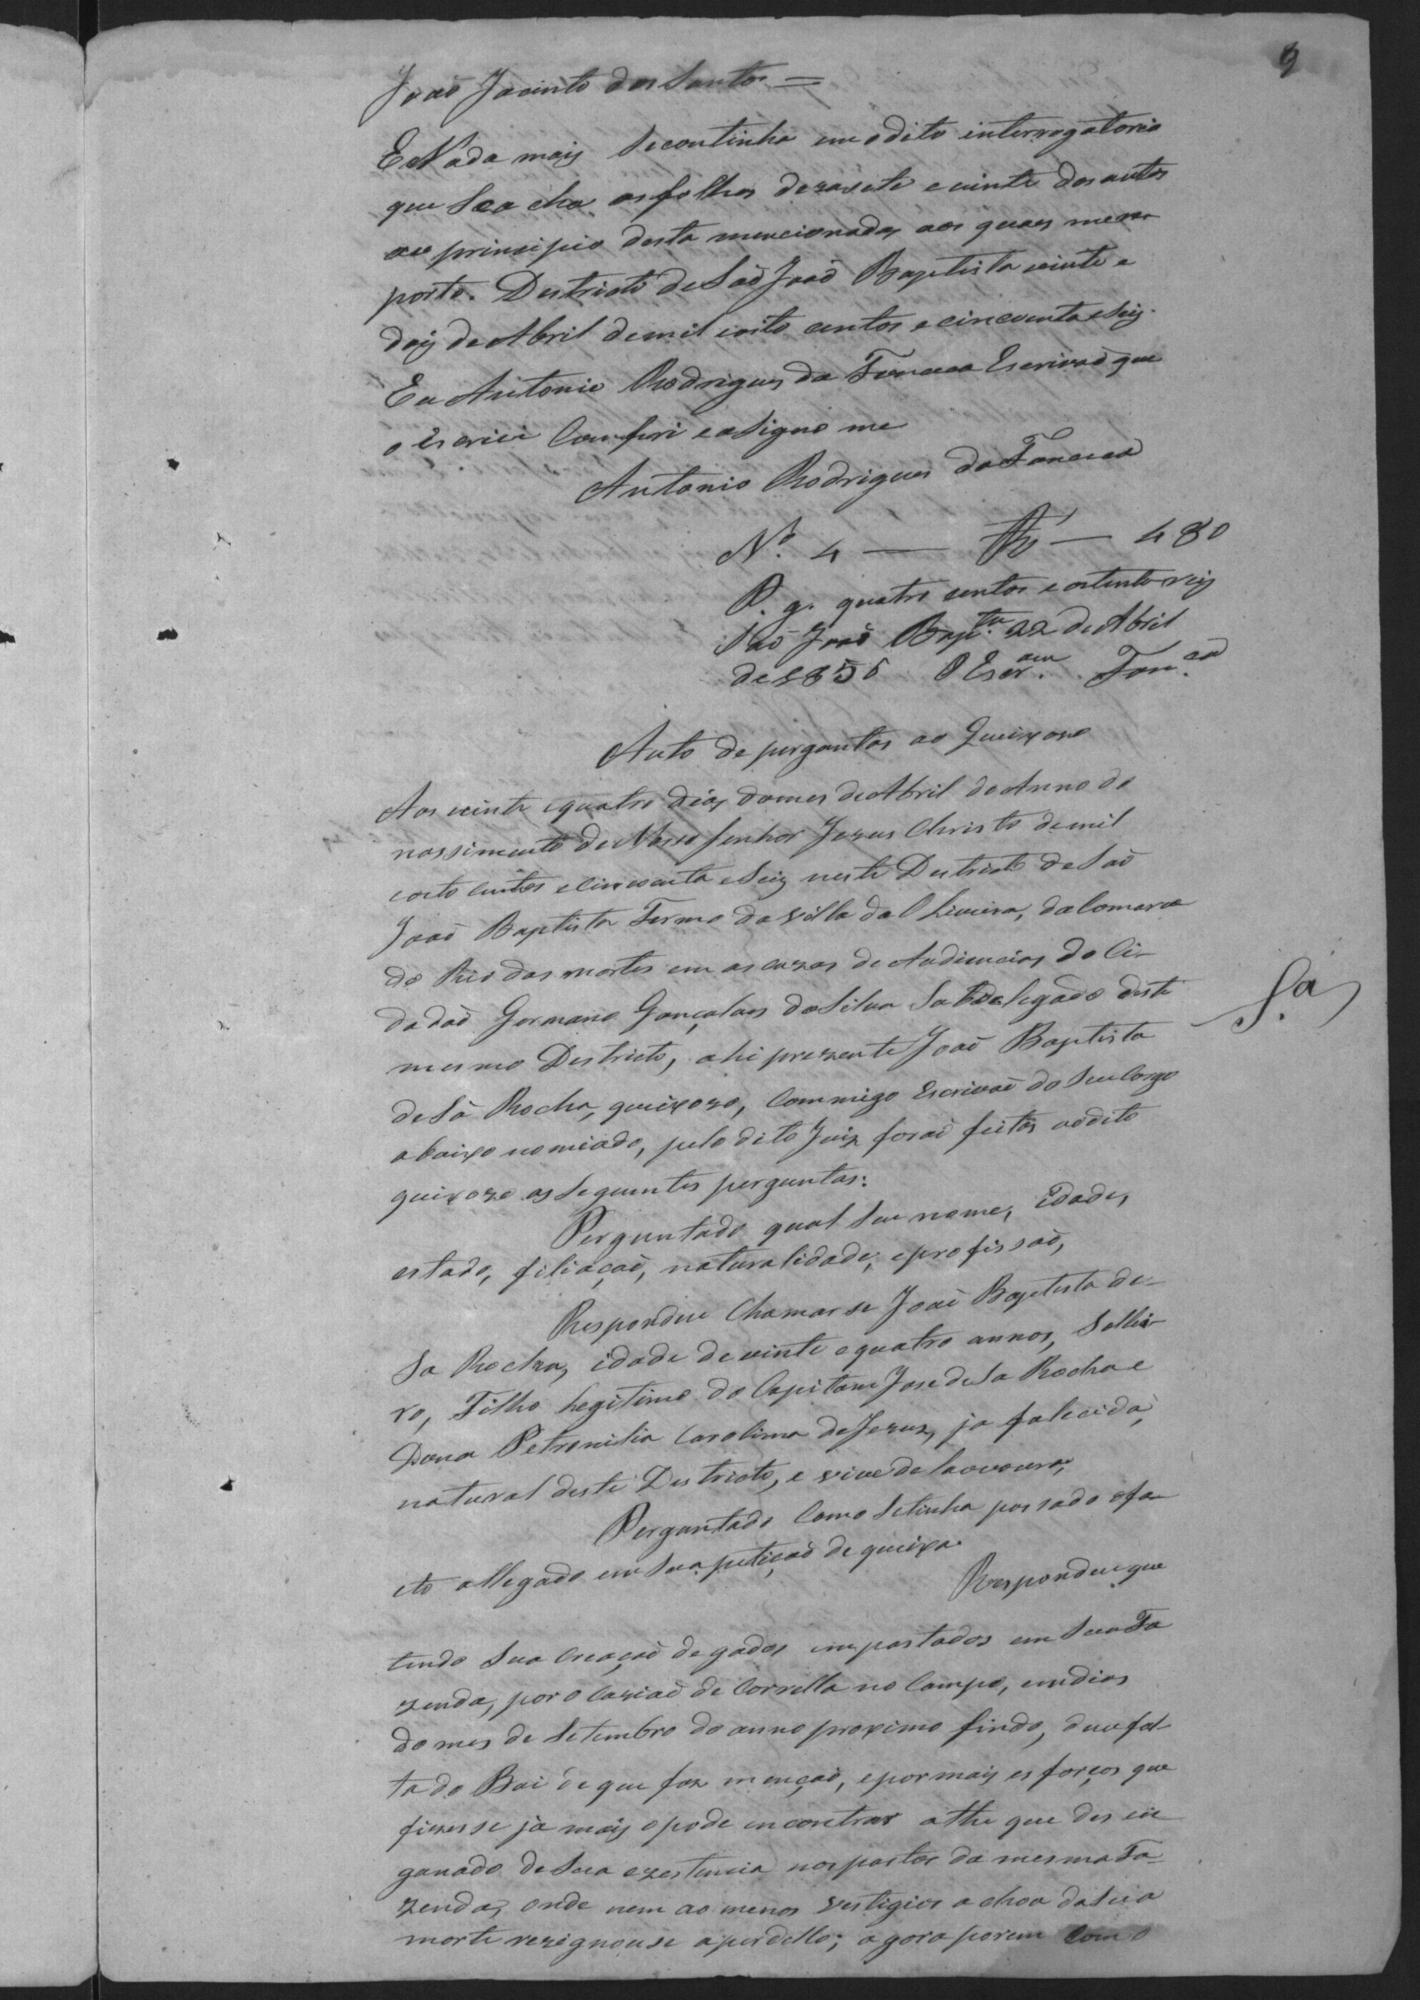 9
João Jacinto dos Santos =
E Nada mais Secontinha em odito interrogatorio
que Seacha as folhas dezasete e vinte dos autos
ao principio desta mencionados aos quaes me re-
porto. Destricto de São João Baptista vinte e
dois de Abril de mil oito centos e cincoenta e Seis.
Eu Antonio Rodrigues da Fonceca Escrivaõ que
o Escrivi Conferi e asigno me
Antonio Rodrigues da Fonceca
Nº 4 — Rs — 480
P. g. quatro centos e oitenta reis
Saõ Joaõ Bapta. 22 de Abril
de 1856 O Escram. Foncca
Auto de perguntas ao Queixoso
Aos vinte equatro dias domes de Abril do Anno do
nassimento de Nosso Senhor Jezus Christo de mil
oito centos e Cincoenta e Seis neste Destricto de Saõ
Joaõ Baptista Termo da Villa da Oliveira, da Comarca
do Rio das mortes em as cazas de Audiencias do Ci-
dadaõ Germano Gonçalves da Silva Subdelegado deste
mesmo Destricto, ahi prezente Joaõ Baptista
de Sá Rocha, queixozo, Commigo Escrivaõ do Seu Cargo
abaixo nomiado, pelo dito Juiz foraõ feitas ao dito
queixozo as Seguintes perguntas:
Sá
Perguntado qual Seu nome, idade,
estado, filiaçaõ, naturalidade, e profissaõ,
Respondeu Chamarse Joaõ Baptista de
Sa Rocha, idade de vinte e quatro annos, Soltei-
ro, Filho Legitimo do Capitam Jose de Sa Rocha e
Dona Petronilia Carolina de Jezus, ja falicida,
natural deste Destricto, e vive de Lavoura,
Perguntado Como Setinha passado ofa-
cto allegado em Sua petiçaõ de queixa.
Respondeu que
tendo Sua Creaçaõ de gados empastados em Sua Fa
zenda, por o Caziaõ de Corrella no Campo, em dias
do mes de Setembro do anno proximo findo, deu fal-
ta do Boi de que faz mençaõ, epor mais esforços que
fizesse já mais o pode encontrar athe que des en
ganado de Sua ezestencia nos pastos da mesma Fa
zenda, onde nem ao menos vestigios achou da Sua
morte rezignouse a perdello; agora porem Com o